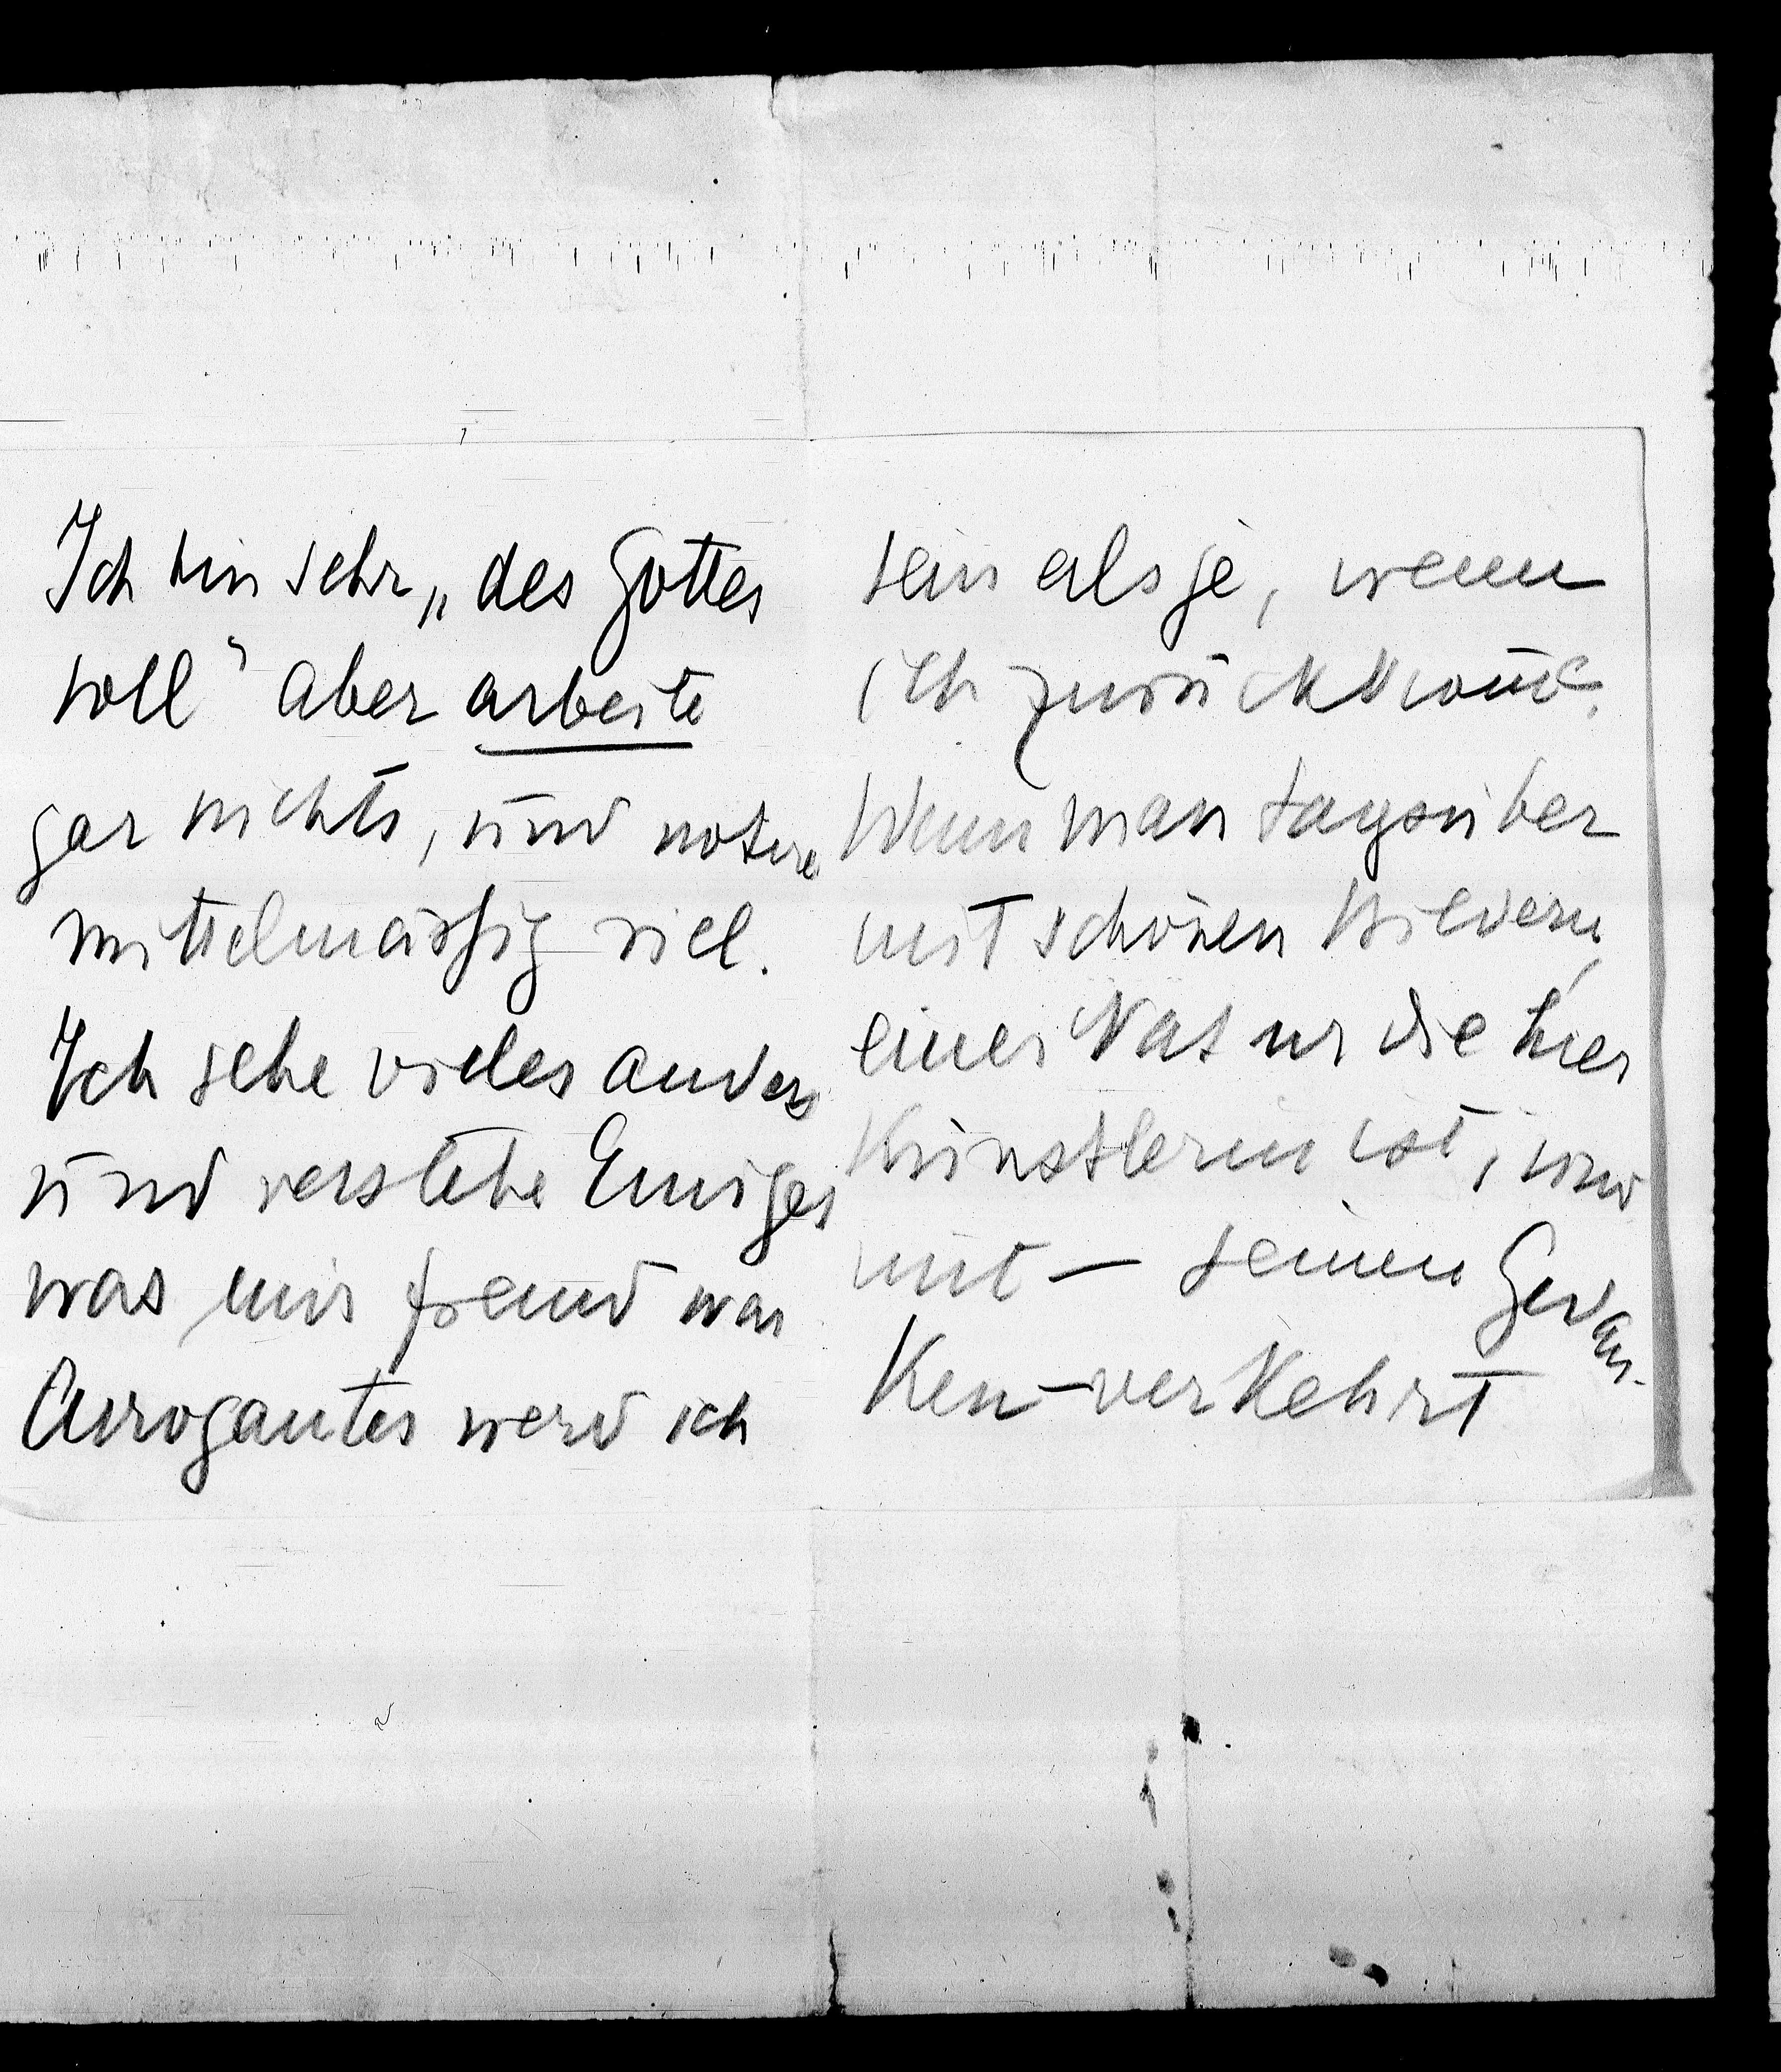 Ich bin sehr „des Gottes
voll" aber arbeite
gar nichts, und notire
mittelmässig viel.
Ich sehe vieles anders
und verstehe Einiges
was mir fremd war
Arroganter werd ich
sein als je, wenn
ich zurück kom̅e.
Wenn man tagsüber
mit schönen Bildern,
einer Natur die hier
Künstlerin ist, und
mit — seinen Gedan-
ken — verkehrt